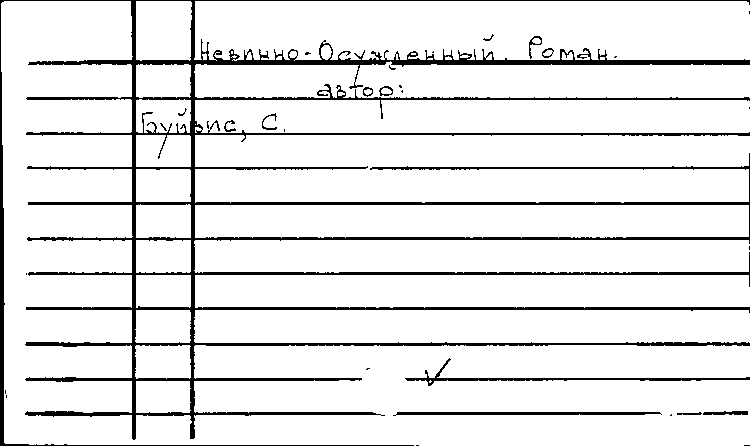 Невинно-Осужденный. Роман.
автор:
Буйвис, С.